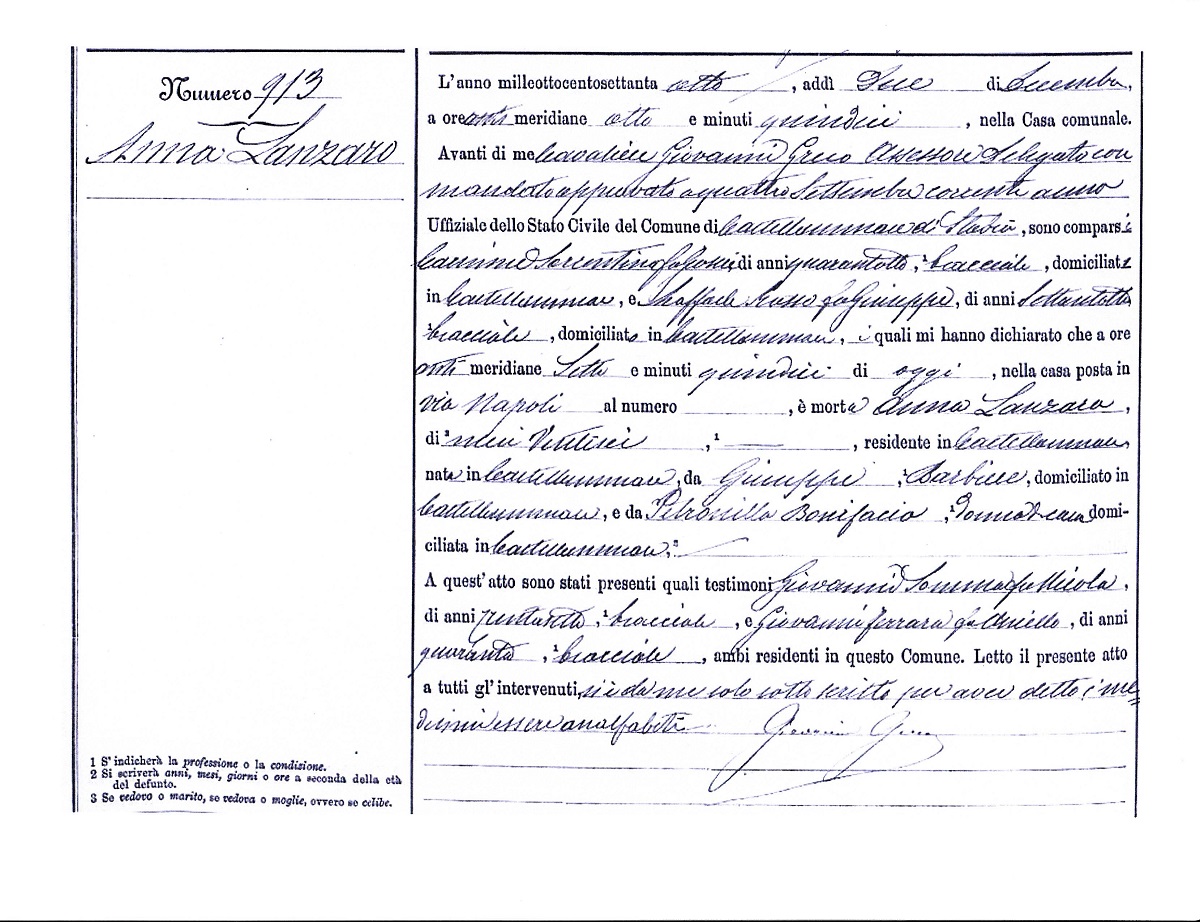 Numero 913
Anna Lanzaro
1 S' indicherà la professione o la condizione.
2 Si scriverà anni, mesi, giorni o ore a seconda della età
del defunto.
3 Se vedovo o marito, se vedova o moglie, ovvero se celibe.
L'anno milleottocentosettanta otto, addì Dieci di Decembre,
a ore anti meridiane otto e minuti quindici, nella Casa comunale.
Avanti di me Cavaliere Giovanni Greco Assessore Delegato con
mandato approvato a quattro Settembre corrente anno
Uffiziale dello Stato Civile del Comune di Castellammare di Stabia, sono comparsi
Carmine Sorrentino fu di anni quarantotto, 1 bracciale, domiciliato
in Castellammare, e Raffaele Russo fu Giuseppe, di anni Settantotto
1 bracciale, domiciliato in Castellammare, i quali mi hanno dichiarato che a ore
anti meridiane Sette e minuti quindici di oggi, nella casa posta in
via Napoli al numero , è morta Anna Lanzaro,
di 2 mesi Ventisei , 1 , residente in Castellammare
nata in Castellammare, da Giuseppe, 1 Barbiere, domiciliato in
Castellammare, e da Petronilla Bonifacio, 1 Donna di casa domi-
ciliata in Castellammare, 3
A quest' atto sono stati presenti quali testimoni Giovanni Somma fu Nicola,
di anni trentasette, 1 bracciale, e Giovanni Ferrara fu Aniello, di anni
quaranta, 1 bracciale, ambi residenti in questo Comune. Letto il presente atto
a tutti gl' intervenuti, si è da me solo sottoscritto per aver detto i me=
desimi essere analfabeti
Giovanni Greco